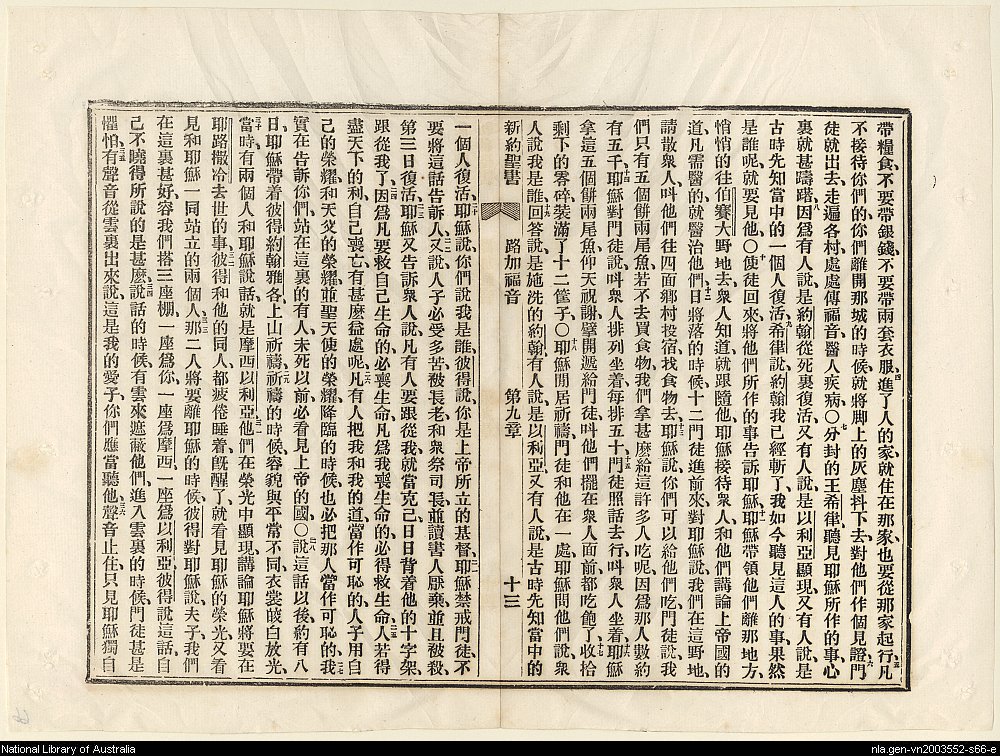 帶糧食、不要帶銀錢、不要帶兩套衣服、四進了人的家就住在那家也要從那家起行、五凡
不接待你們的、你們離開那城的時候就將脚上的灰塵抖下去、對他們作個見證、六門
徒就出去、走遍各村、處處傳福音、醫人疾病、〇七分封的王希律聽見耶穌所作的事、心
裏就甚躊躇、因爲有人說是約翰從死裏復活、八又有人說是以利亞顯現、又有人說是
古時先知當中的一個人復活、九希律說、約翰我已經斬了、我如今聽見這人的事、果然
是誰呢、就要見他、〇十使徒回來將他們所作的事告訴耶穌、耶穌帶領他們離那地方、
悄悄的往伯賽大野地去、十一衆人知道就跟隨他、耶穌接待衆人、和他們講論上帝國的
道、凡需醫的就醫治他們、十二日將落的時候、十二門徒進前來對耶穌說、我們在這野地、
請散衆人、叫他們往四面鄉村投宿找食物去、十三耶穌說、你們可以給他們吃、門徒說、我
們只有五個餅兩尾魚、若不去買食物、我們拿甚麽給這許多人吃呢、十四因爲那人數約
有五千、耶穌對門徒說、叫衆人排列坐着、每排五十、十五門徒照話去行、叫衆人坐着、十六耶穌
拿這五個餅兩尾魚、仰天祝謝、擘開遞給門徒、叫他們擺在衆人面前、十七都吃飽了、收拾
剩下的零碎、裝滿了十二筐子、〇十八耶穌閒居祈禱、門徒和他在一處、耶穌問他們說、衆
人說我是誰、十九回答說、是施洗的約翰、有人說是以利亞、又有人說是古時先知當中的
新約聖書 路加福音 第九章 十三
一個人復活、二十耶穌說、你們說我是誰、彼得說、你是上帝所立的基督、二一耶穌禁戒門徒、不
要將這話告訴人、二二又說、人子必受多苦、被長老和衆祭司長並讀書人厭棄、並且被殺、
第三日復活、二三耶穌又告訴衆人說、凡有人要跟從我、就當克己、日日背着他的十字架、
跟從我了、二四因爲凡要救自己生命的、必喪生命、凡爲我喪生命的、必得救生命、二五人若得
盡天下的利、自己喪亡、有甚麽益處呢、二六凡有人把我和我的道當作可恥的、人子用自
己的榮耀和天父的榮耀、並聖天使的榮耀、降臨的時候、也必把那人當作可恥的、二七我
實在告訴你們、站在這裏的有人未死以前、必看見上帝的國、〇二八說這話以後、約有八
日、耶穌帶着彼得約翰雅各上山祈禱、二九祈禱的時候、容貌與平常不同、衣裳皎白放光、
三十當時有兩個人和耶穌說話、就是摩西以利亞、三一他們在榮光中顯現、講論耶穌將要在
耶路撒冷去世的事、三二彼得和他的同人都疲倦睡着、旣醒了、就看見耶穌的榮光、又看
見和耶穌一同站立的兩個人、三三那二人將要離耶穌的時候、彼得對耶穌說、夫子、我們
在這裏甚好、容我們搭三座棚、一座爲你、一座爲摩西、一座爲以利亞、彼得說這話、自
己不曉得所說的是甚麽、三四說話的時候、有雲來遮蔽他們、進入雲裏的時候、門徒甚是
懼怕、三五有聲音從雲裏出來說、這是我的愛子、你們應當聽他、三六聲音止住、只見耶穌獨自
National Library of Australia
nla.gen-vn2003552-s66-e